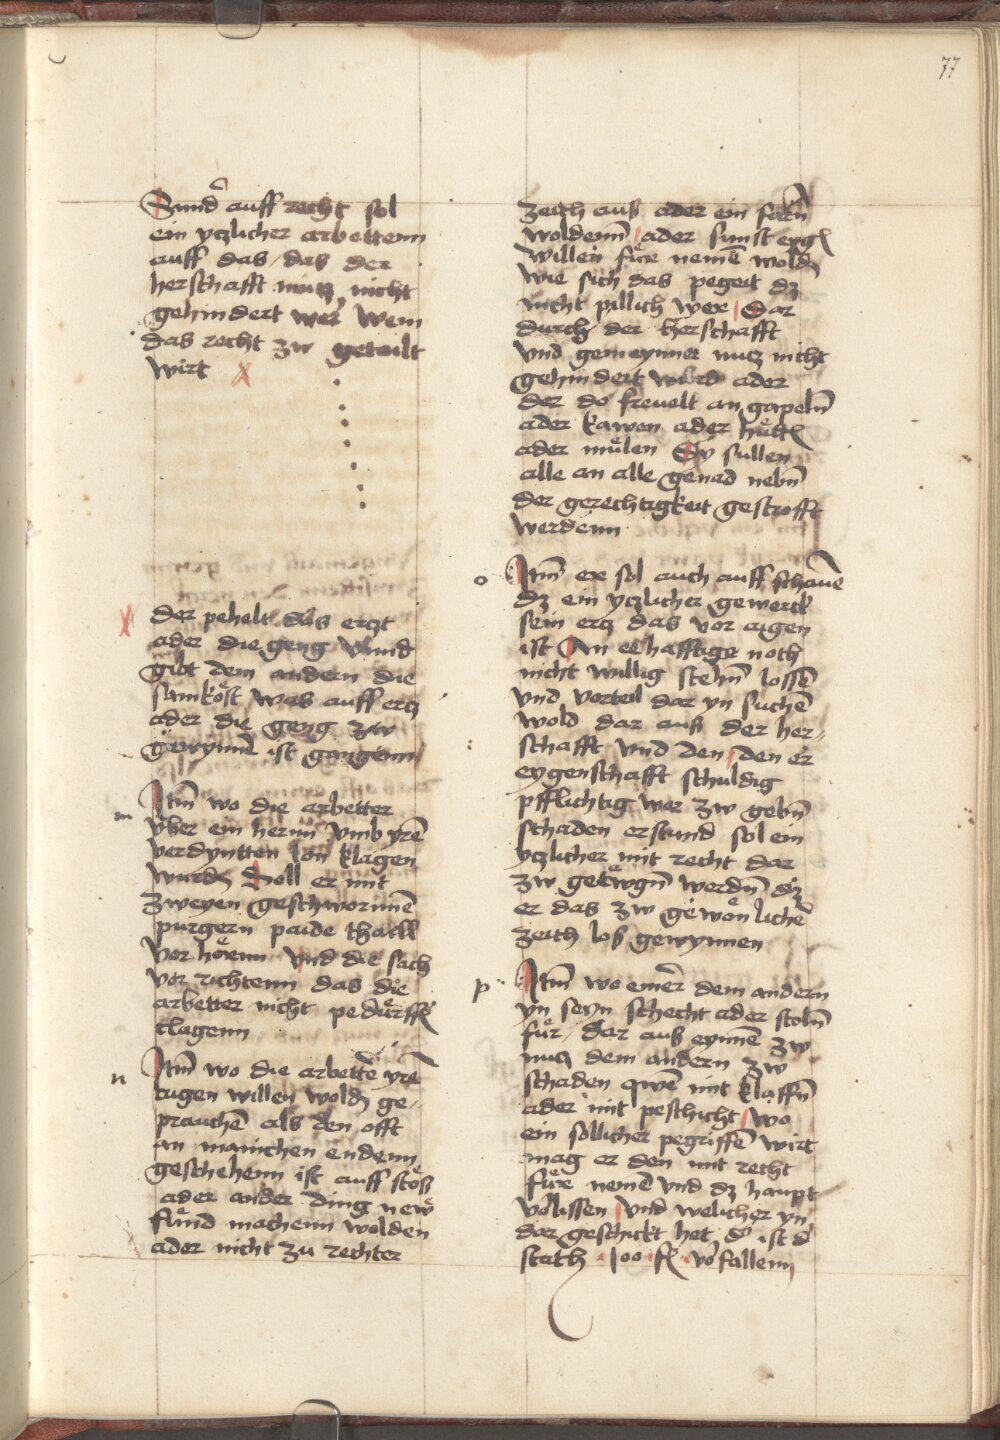 77
Sund̄ auff recht sol
ein yczlicher arbettenn
auff das / das der
herschafft nucz nicht
gehindert wer Wem
das recht zw geteilt
wirt
der pehelt das erczt
ader die geng Vnnd
gibt dem andern die
samkost was auff ercz
ader die geng zw
gewynnē ist gangenn
m
Itm̄ wo die arbetter
vber ein hernn vmb yrē
verdyntten lon klagen
wurdn Soll er mit
zweyen geschwornnē
purgern paide thaill
vor hörenn vnd die sach
vor richtenn das die
arbetter nicht pedürffn
clagenn
n
Itm̄ wo die arbettē yrē
aigen willen woldn ge-
prauchē als den offt
an manichen endenn
geschehenn ist auff stöß
ader ander ding new
fünd machenn wolden
ader nicht zu rechter
zeith auß ader ein farn̄
woldenn̄ ader sunst eygn
willen füre nemē woldn
wie sich das pegeit dz
nicht pillich wer / Dar
durch der herschafft
vnd gemeynner nucz nicht
gehindert würd ader
der do freuelt an gapeln̄
ader kawen ader hüttn
ader mülen Dy sullen
alle an alle genad nebn̄
der gerechtigkeit gestrofft
werdenn
o
Itm̄ er sol auch auff schauē
dz ein yczlicher gewerck
sein ercz das vor augen
ist An eehafftige noth
nicht willig stehn̄ lossē
vnd vorteil dar yn suchē
wold dar auß der her-
schafft vnd den / den er
eygenschafft schuldig
pfflichtig wer zw getn̄
schaden erstund sol ein
yczlicher mit recht dar
zw getzwgn̄ werdn̄ dz
er das zw gewönlichē
zeith los gewynnen
p
Itm̄ wo einer dem andern
yn seyn schecht ader stoln̄
für / dar auß eynnē zw
nucz dem andern zw
schaden qwē mit klaffn̄
ader mit peschicht / wo
ein sollicher pegriffē wirt
mag er den mit recht
füre nemē vnd dz haupt
vorlissen / vnd welicher yn
dar geschickt het d̄ ist d̄
stath 100 fl vorfallenn